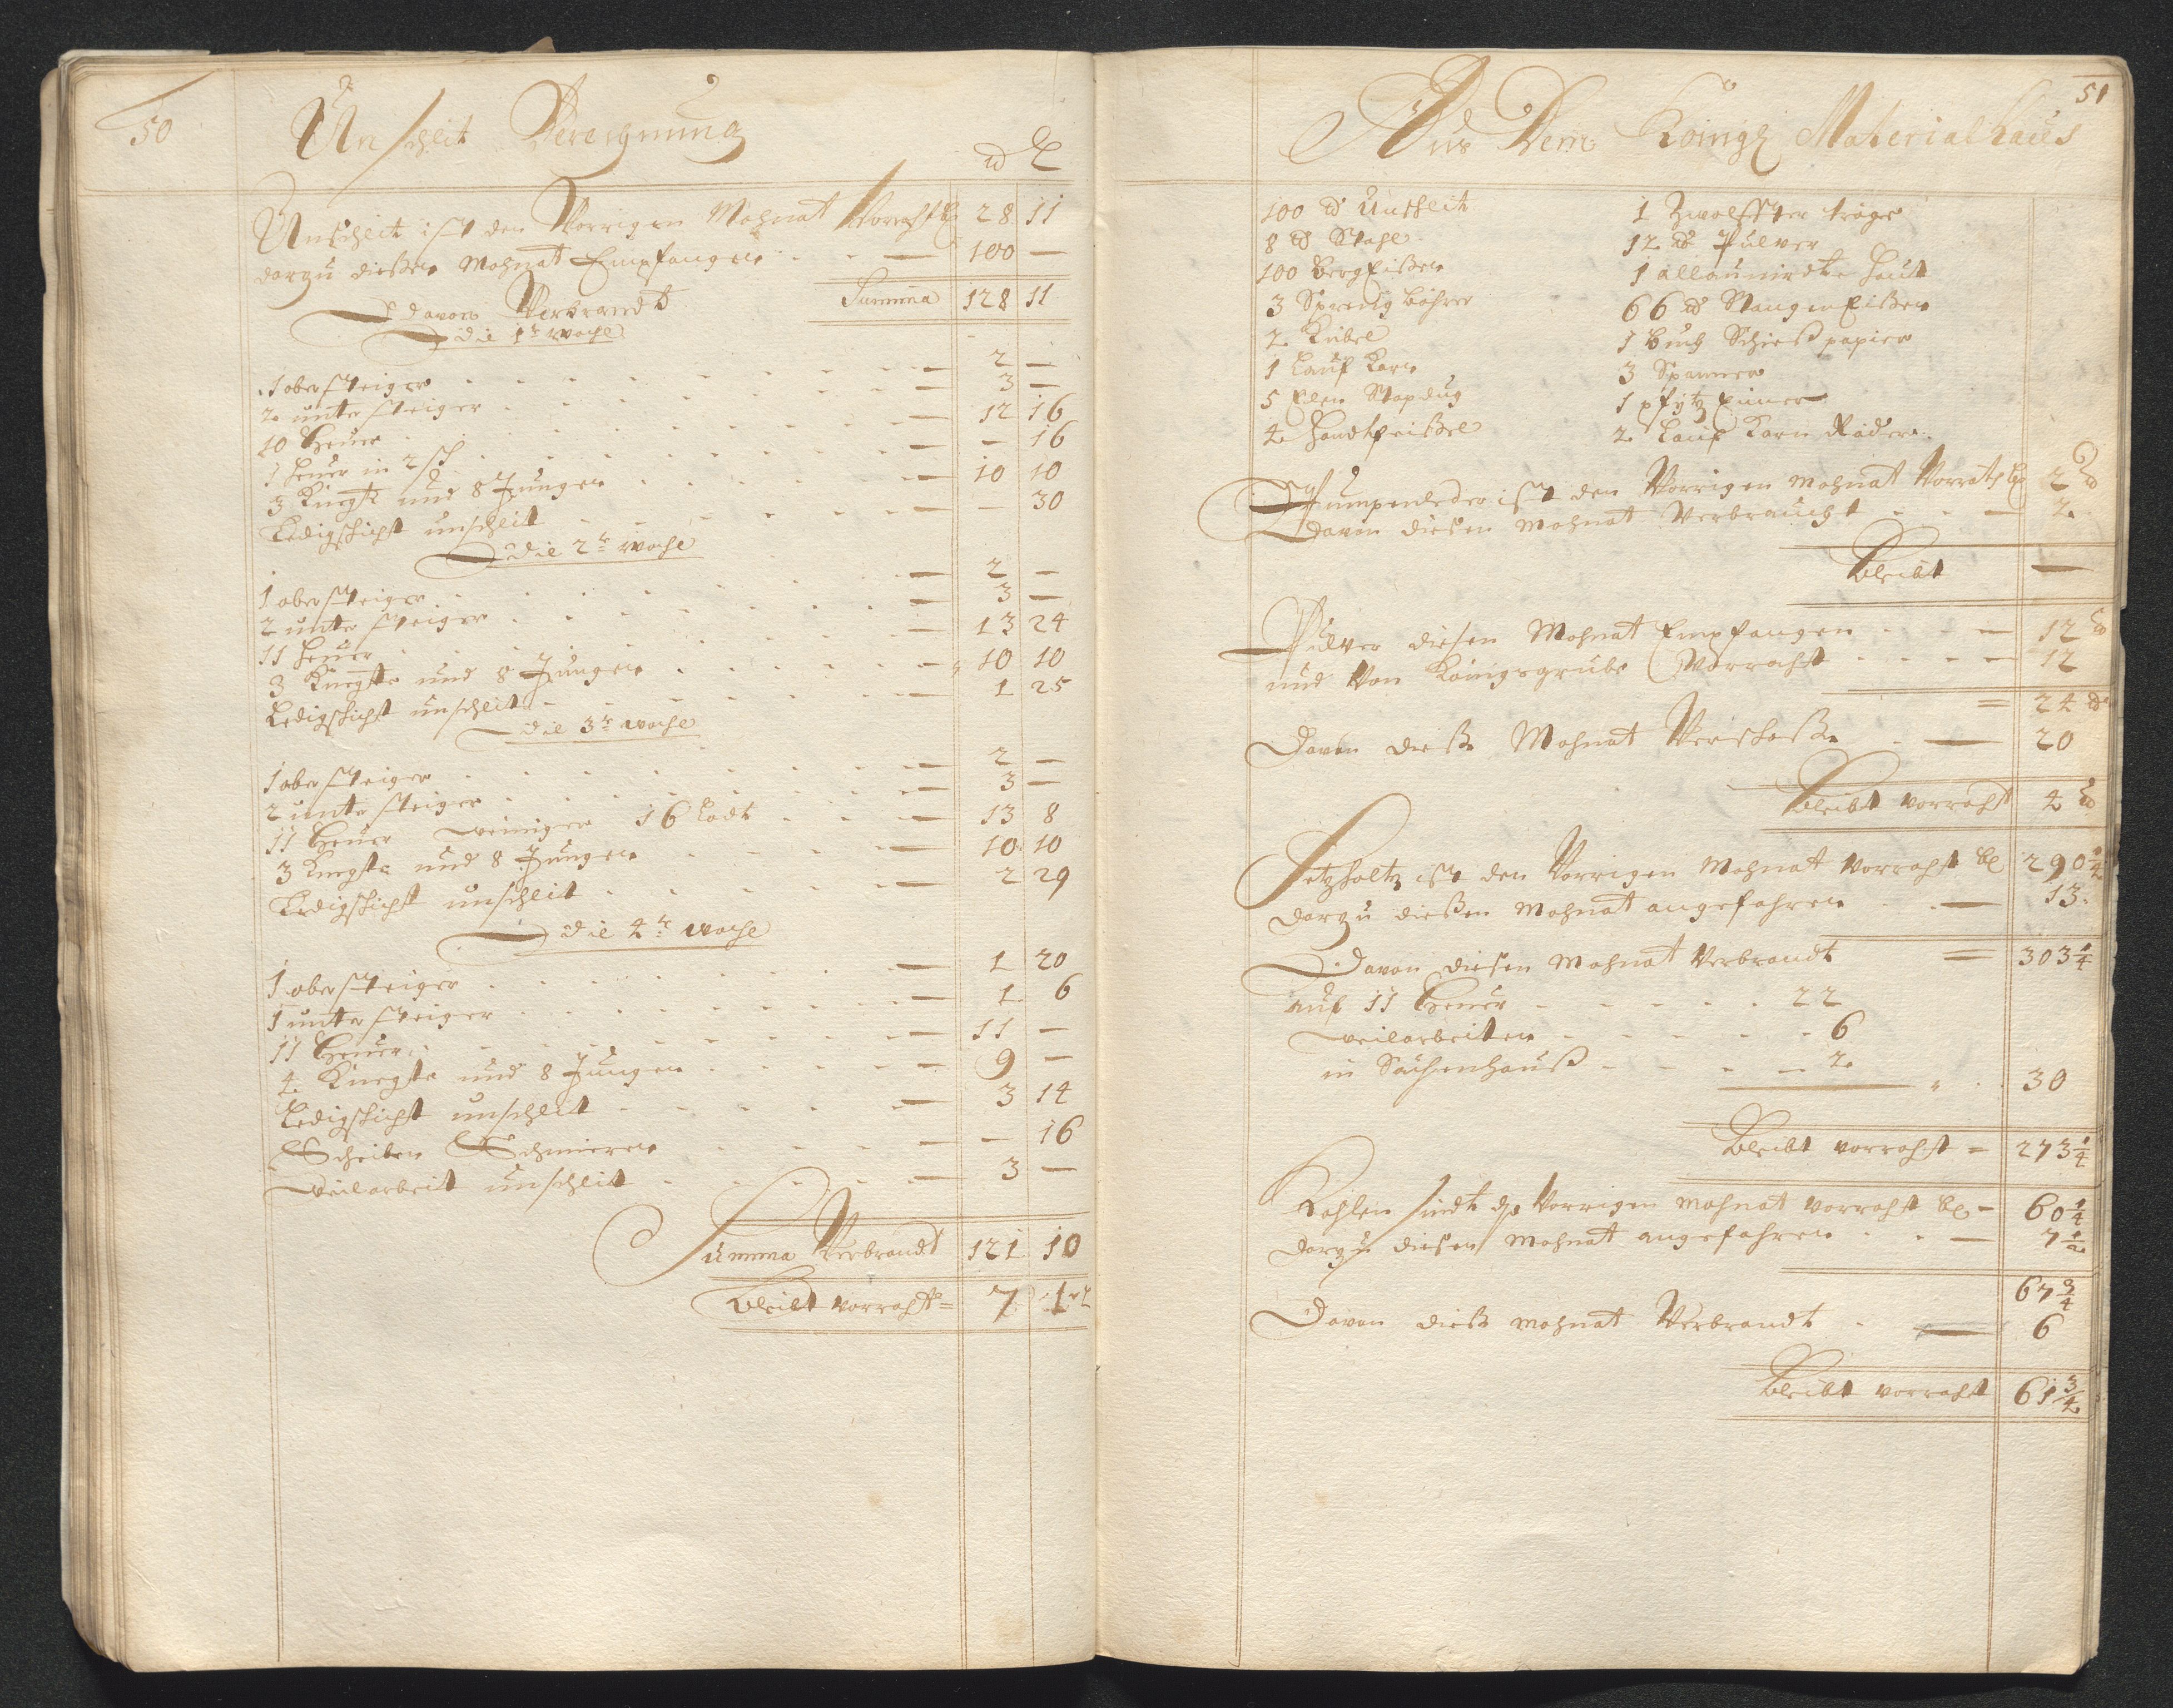 50
Unscheit Berechnung
℔ L
Unscheit ist den Vorrigen Mohnat Vorraht bl 28 11
darzu dießen Mohnat Empfangen 100 —
Summa 128 11
davon Verbrandt
die 1te woche
1 obersteiger 2 —
2 untersteiger 3 —
10 Heuer 12 16
1 heuer in 2 sch — 16
3 Knegte und 8 Jungen 10 10
Ledigschicht unscheit — 30
die 2te woche
1 obersteiger 2 —
2 untersteiger 3 —
11 heuer 13 24
3 Knegte und 8 Jungen 10 10
Ledigschicht unscheit 1 25
die 3te woche
1 obersteiger 2 —
2 untersteiger 3 —
11 Heuer weiniger 16 Lodt 13 8
3 Knegte und 8 Jungen 10 10
Ledigschicht unscheit 2 29
die 4te woche
1 obersteiger 1 20
1 untersteiger 1 6
11 Heuer 11 —
4 Knegte und 8 Jungen 9 —
Ledigschicht unscheit 3 14
Scheiben Schmieren — 16
weilarbeit unscheit 3 —
Summa Verbrandt 121 10
Bleibt vorraht = 7 1
51
Aus Dem Köingl Materialhaus
100 ℔ Unscheit
8 ℔ Stahl
100 BergEißen
3 Spreng bohrer
2 Kübel
1 Lauf Karn
5 Elen Stopdug
4 Handtfeißel
1 Zwolffter tröge
12 ℔ Pulver
1 allaunirdte Haut
66 ℔ StangenEißen
1 Buch Schießpapier
3 Spanner
1 pfytz Eimer
2 Lauf Karn Räder
Pumpenleder ist den Vorrigen Mohnat Vorraht bl 2 ℔
Davon diesen Mohnat Verbraucht 2
Bleibt —
Pulver diesen Mohnat Empfangen 12 ℔
und Von Köingsgrube Vorraht 12
= 24 ℔
Davon dieße Mohnat Verschoße 20
Bleibt vorraht 4 ℔
Setzholtz ist den Vorrigen Mohnat Vorraht bl 290 1/4
darzu dießen Mohnat angefahren 13
= 303 1/4
Davon diesen Mohnat Verbrandt
auf 11 Heuer 22
weilarbeiten 6
in Sachenhauß 2
30
Bleibt vorraht = 273 1/4
Kohlen sindt des Vorrigen Mohnat vorraht bl 60 1/4
darzu diesen Mohnat angefahren 7 1/2
67 3/4
Davon dieße Mohnat Verbrandt 6
Bleibt vorraht 61 3/4